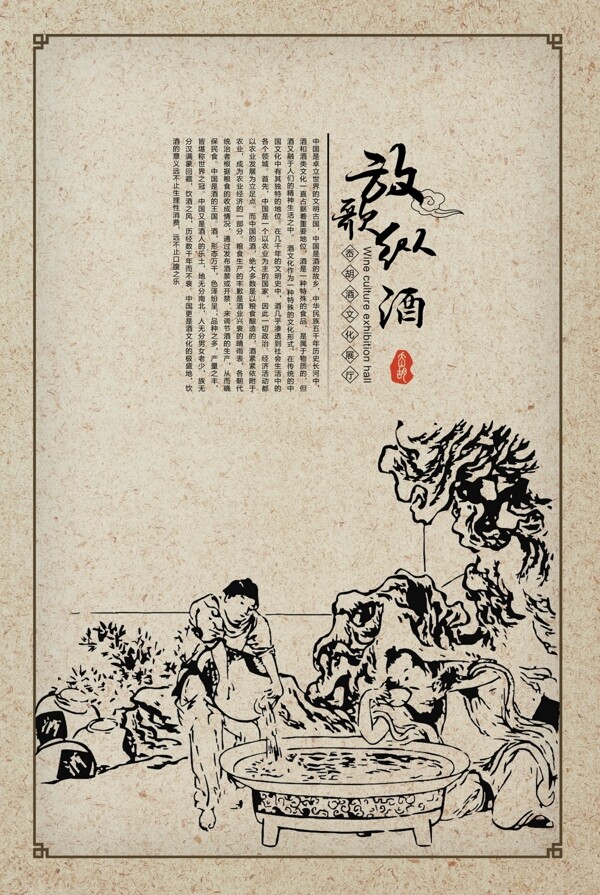 放歌纵酒
Wine culture exhibition hall
杏胡酒文化展厅
中国是卓立世界的文明古国，中国是酒的故乡，中华民族五千年历史长河中，
酒和酒类文化一直占据着重要地位，酒是一种特殊的食品，是属于物质的，但
酒又融于人们的精神生活之中。酒文化作为一种特殊的文化形式，在传统的中
国文化中有其独特的地位。在几千年的文明史中，酒几乎渗透到社会生活中的
各个领域。首先，中国是一个以农业为主的国家，因此一切政治、经济活动都
以农业发展为立足点。而中国的酒，绝大多数是以粮食酿造的，酒紧紧依附于
农业，成为农业经济的一部分。粮食生产的丰歉是酒业兴衰的晴雨表，各朝代
统治者根据粮食的收成情况，通过发布酒禁或开禁，来调节酒的生产，从而确
保民食。中国是酒的王国。酒，形态万千，色泽纷呈；品种之多，产量之丰，
皆堪称世界之冠。中国又是酒人的乐土，地无分南北，人无分男女老少，族无
分汉满蒙回藏，饮酒之风，历经数千年而不衰。中国更是酒文化的极盛地，饮
酒的意义远不止生理性消费，远不止口腹之乐